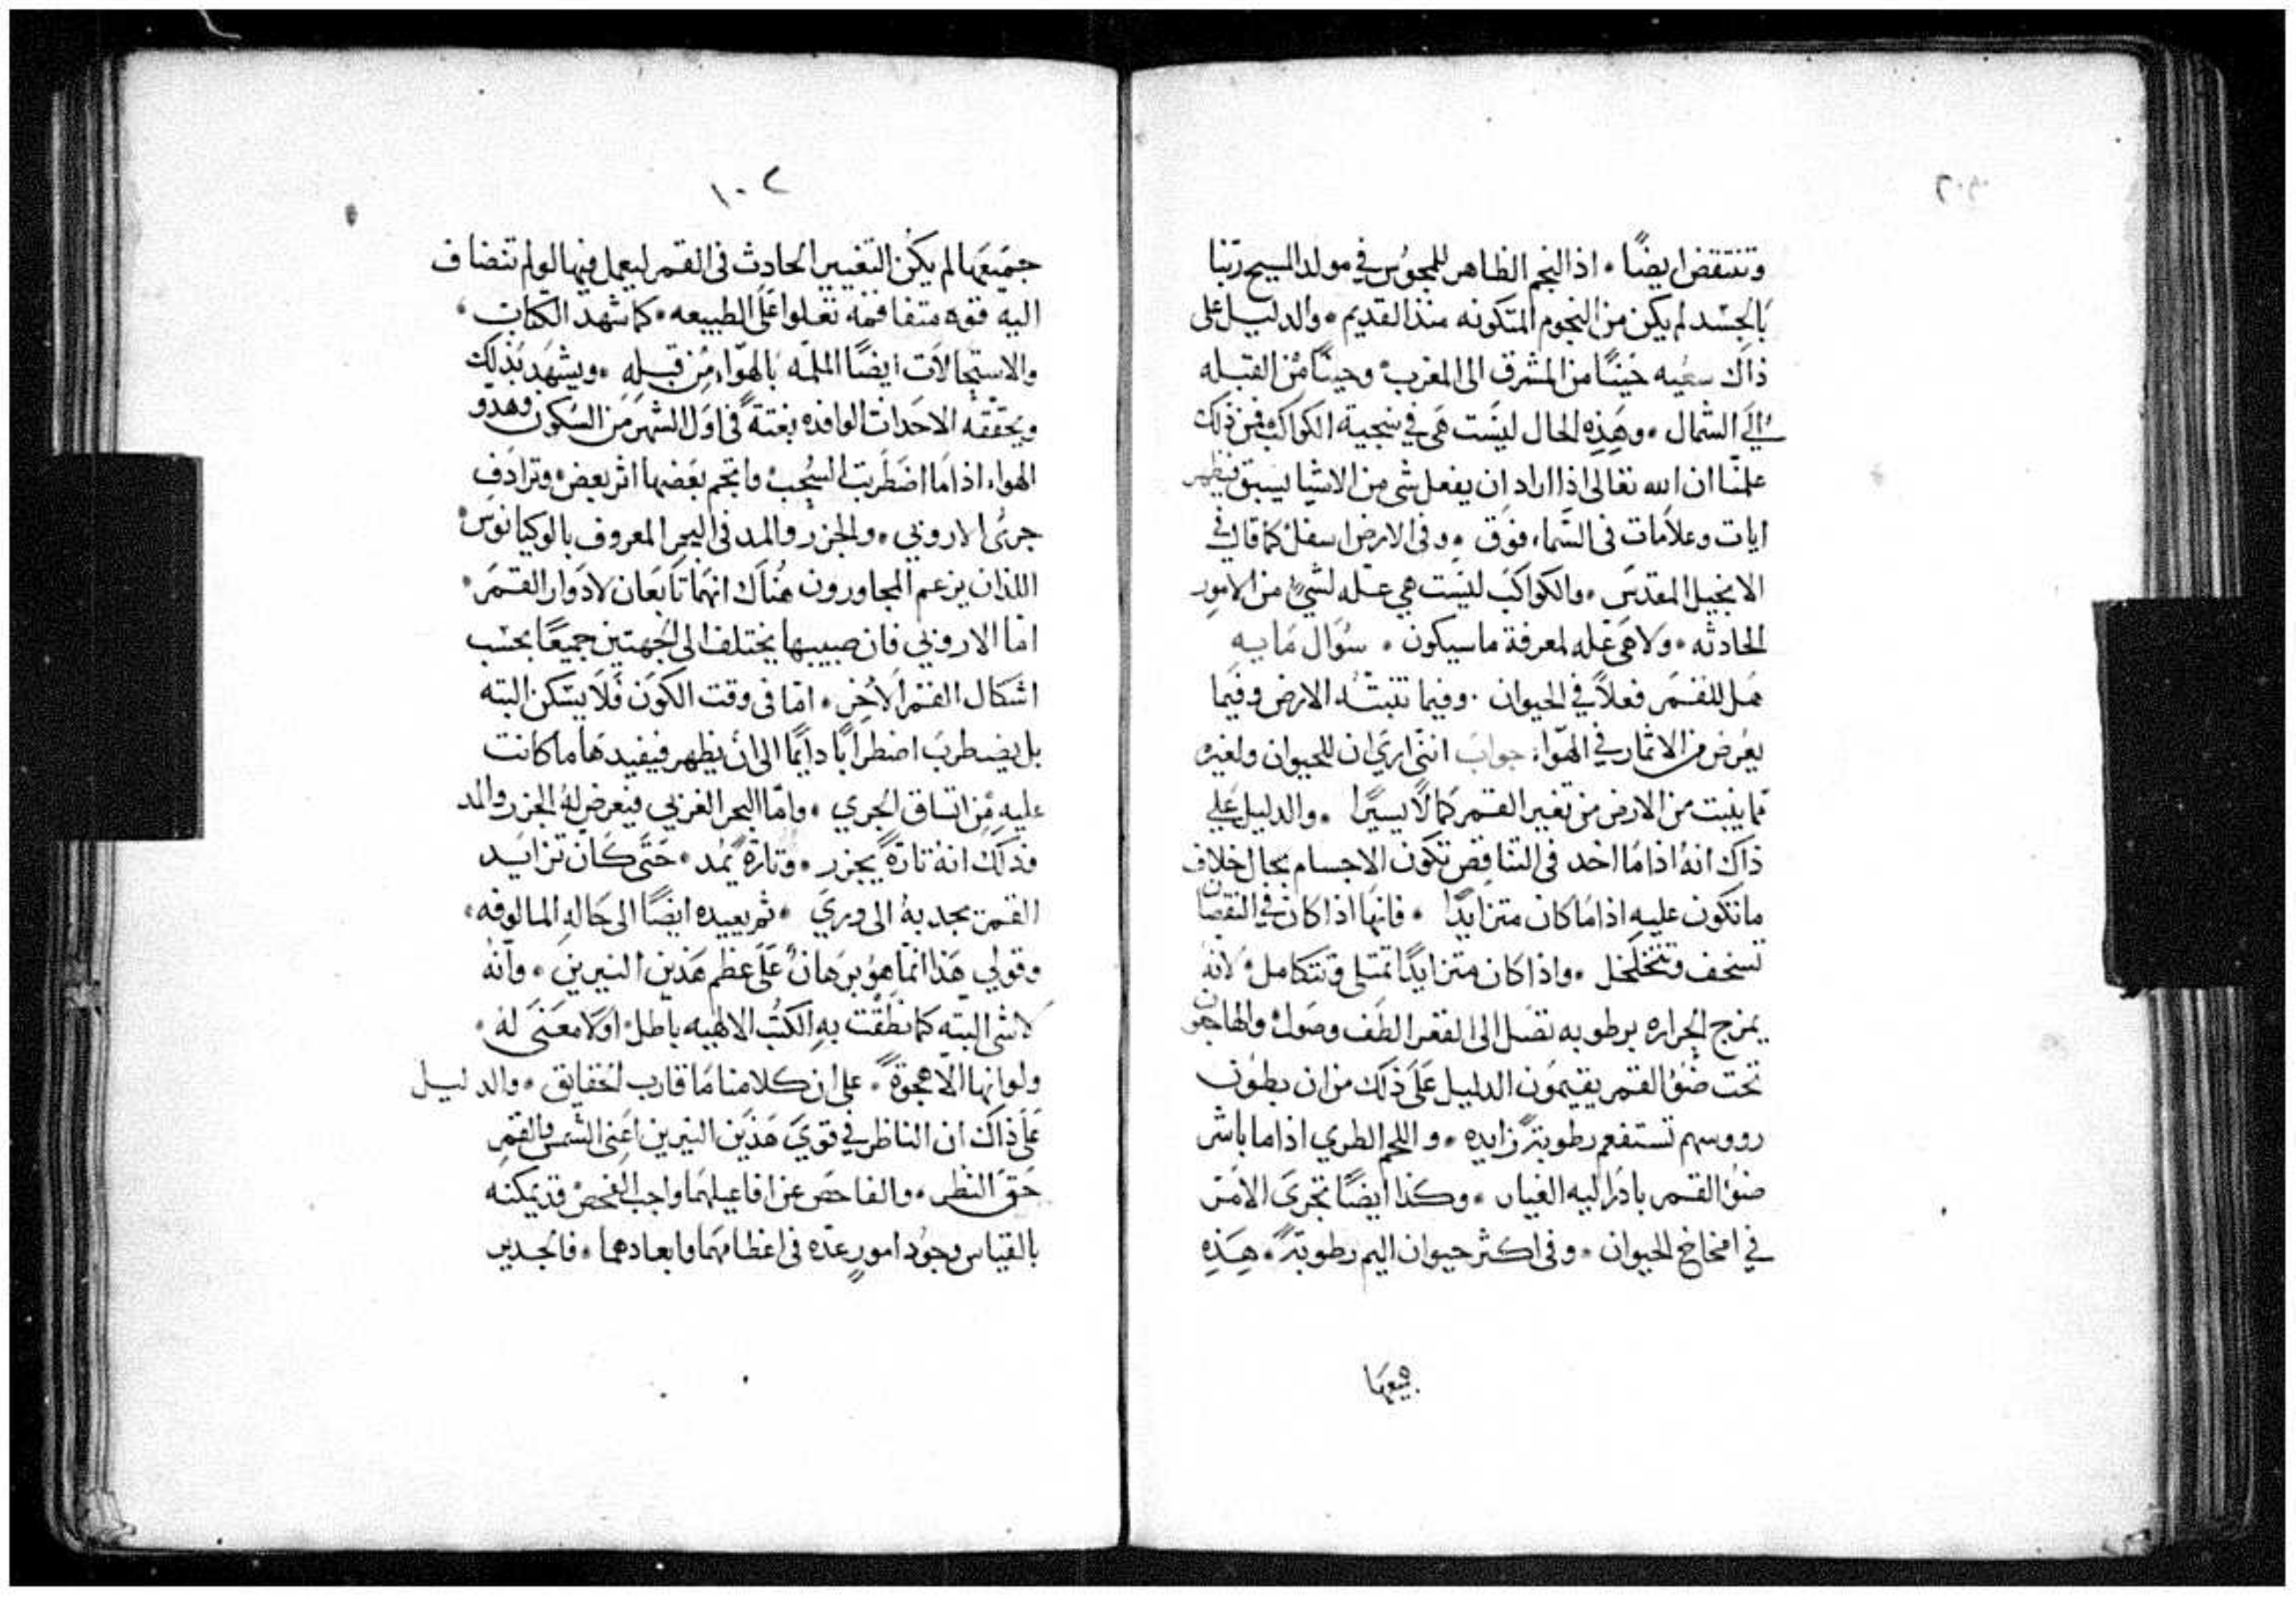 وتنتقض ايضًا • اذ النجم الظاهر للمجوس في مولد المسيح ربنا
بالجسد لم يكن من النجوم المتكونه منذ القديم • والدليل على
ذاك سعيه حينًا من المشرق الى المغرب وحينًا من القبله
الى الشمال • وهذه الحال ليست هي في سجية الكواكب فمن ذلك
علمنا ان الله تعالى اذا اراد ان يفعل شي من الاشيا يسبق فيظهر
ايات وعلامات في السماء فوق • وفي الارض اسفل كما قال في
الانجيل المقدس • والكواكب ليست هي عله لشيٍ من الامور
الحادثه • ولا هي عله لمعرفة ما سيكون • سؤال مايه
هل للقمر فعلاً في الحيوان • وفيما تنبته الارض وفيما
يعرض من الاثمار في الهواء جواب انني اري ان للحيوان ولغيره
مما ينبت من الارض من تغير القمر كمالاً يسيرًا • والدليل علي
ذاك انه اذا ما اخد في التناقص تكون الاجسام بحال خلاف
ما تكون عليه اذا ما كان متزايدًا • فانها اذا كان في النقصان
تسخف وتتخلخل • واذا كان متزايدًا تمتلي وتتكامل لانه
يمزج الحراره برطوبه تصل الى القعر الطف وصول والهاجعون
تحت ضؤ القمر يقيمون الدليل على ذلك من ان بطون
رووسهم تستفعم رطوبةً زايده • واللحم الطري اذا ما باشر
ضؤ القمر بادر اليه الغياب • وكذا ايضًا تجرى الامر
في امخاخ الحيوان • وفي اكثر حيوان اليم رطوبةً • هذه
جميعها
١٠٢
جميعها لم يكن التغيير الحادث في القمر ليعمل فيها لو لم تنضاف
اليه قوه متفاقمه تعلوا على الطبيعه • كما شهد الكتاب •
والاستحالات ايضًا الملمه بالهواء من قبله • ويشهد بذلك
ويحققه الاحداث الوافده بغتة في اول الشهر من السكون وهدو
الهواء اذا ما اضطربت السحب وانجم بعضها اثر بعض وترادف
جرى الاروني • والجزر والمد في البحر المعروف بالوكيانوس
اللذان يزعم المجاورون هناك انهما تابعان لادوار القمر •
اما الاروني فان صبيبها يختلف الى الجهتين جميعًا بحسب
اشكال القمر الاخر • اما في وقت الكون فلا يسكن البته
بل يضطرب اضطرابًا دايمًا الى ان يظهر فيفيدها ما كانت
عليه من اتساق الجري • واما البحر الغربي فيعرض له الجزر والمد
وذلك انه تارةً يجزر • وتارةً يمد • حتى كان تزايد
القمر يجدبه الى وري • ثم يعيده ايضًا الى حاله المالوفه •
وقولي هذا انما هو برهان على عظم هذين النيرين • وانه
لا شي البته كما نطقت به الكتب الالهيه باطل او لا معنى له •
ولو انها الا هجوةً • على ان كلامنا ما قارب الحقايق • والدليل
على ذاك ان الناظر في قوي هذين النيرين اعنى الشمس والقمر
حق النظر • والفاحص عن افاعيلهما واجب الفحص قد يمكنه
بالقياس وجود امورٍ عده في اعظامهما وابعادهما • فالجدير